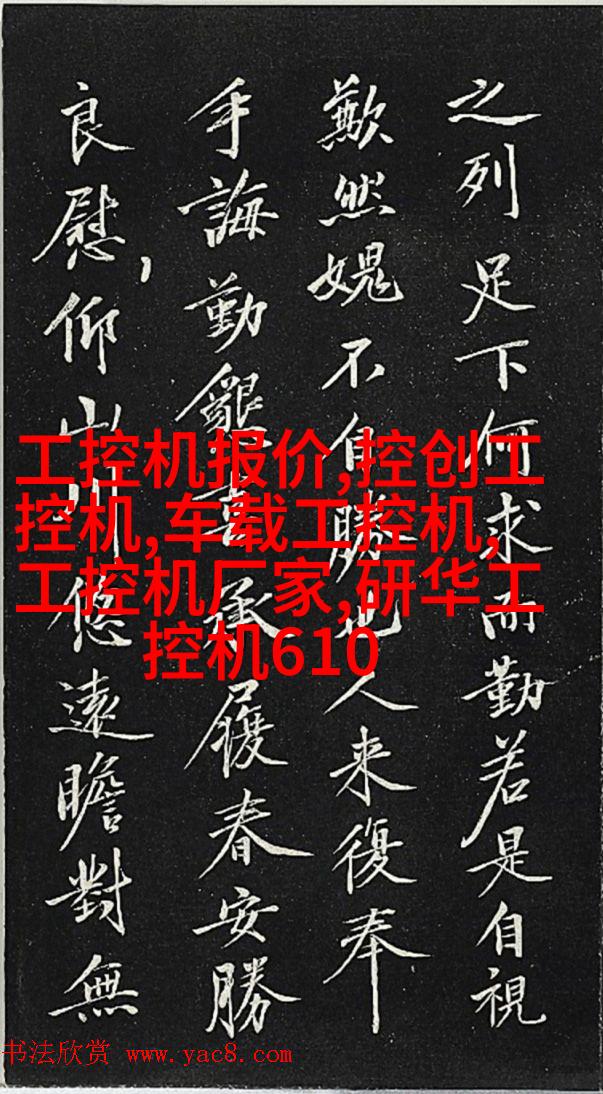 之列足下何求而勤若是自視
歉然媿不自勝也人来復奉
手誨勤懇喜承履春安勝
良慰,仰山川悠遠瞻對無
工控机报价,控创工
控机,车载工控机,
工控机厂家,研华工
控机610
书法欣赏 www.yac8.com